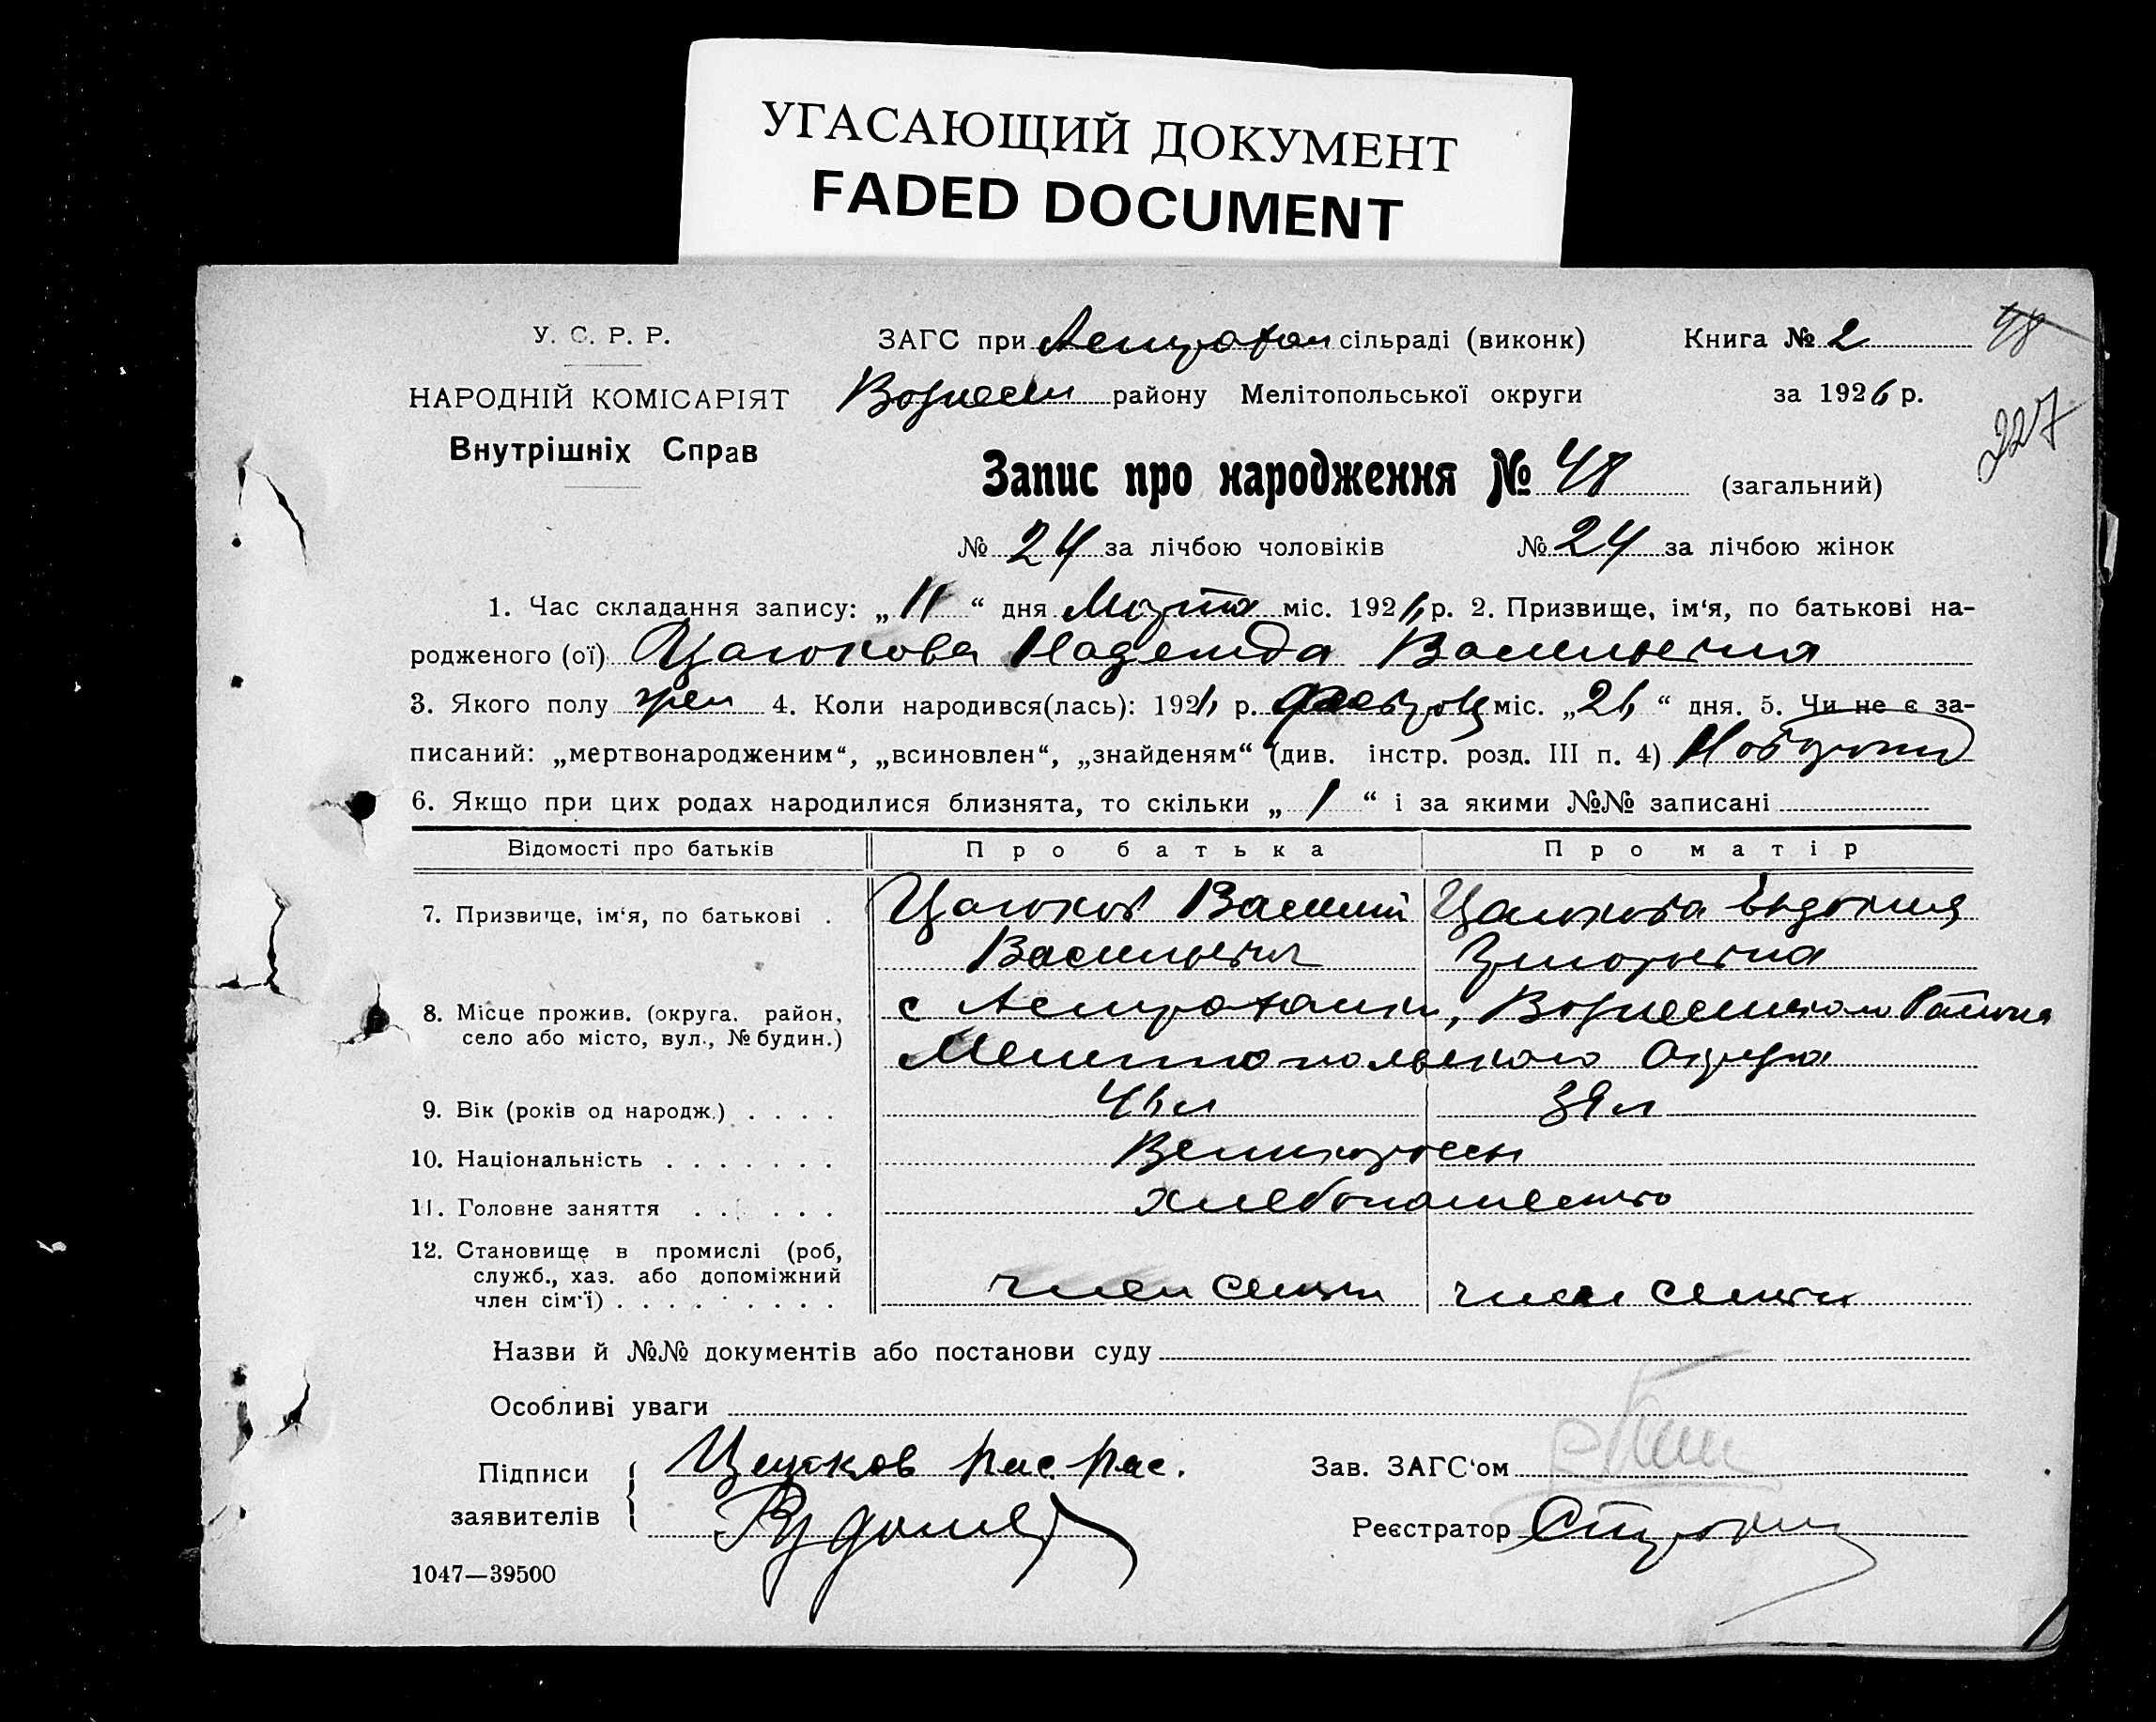 УГАСАЮЩИЙ ДОКУМЕНТ
FADED DOCUMENT
У. С. Р. Р.
НАРОДНІЙ КОМІСАРІЯТ
Внутрішніх Справ
ЗАГС при Астрахан сільраді (виконк)
Книга № 2
48
Вознесен району Мелітопольської округи
за 1926 р.
227
Запис про народження № 48 (загальний)
№ 24 за лічбою чоловіків № 24 за лічбою жінок
1. Час складання запису: „11“ дня Марта міс. 1926 р. 2. Призвище, ім‘я, по батькові на-
родженого (ої) Надежда Васильевна
3. Якого полу жен 4. Коли народився(лась): 1926 р. міс. „26“ дня. 5. Чи не є за-
писаний: „мертвонародженим“, „всиновлен“, „знайденям“ (див. інстр. розд. III п. 4)
6. Якщо при цих родах народилися близнята, то скільки „ 1 “ і за якими №№ записані
Відомості про батьків
Про батька
Про матір
7. Призвище, ім‘я, по батькові .
Василий
Евдокия
Васильевич
Григорьевна
8. Місце прожив. (округа. район,
село або місто, вул., № будин.)
с Астраханки, Вознесенского Района
Мелитопольского Округа
9. Вік (років од народж.) . . . .
46 л
39 л
10. Національність . . . . . . .
Великороссы
11. Головне заняття . . . . . .
хлебопашество
12. Становище в промислі (роб,
служб., хаз. або допоміжний
член сім‘ї) . . . . . . . . .
член семьи
член семьи
Назви й №№ документів або постанови суду
Особливі уваги
Підписи
заявителів
Зав. ЗАГС‘ом
Реєстратор
1047—39500